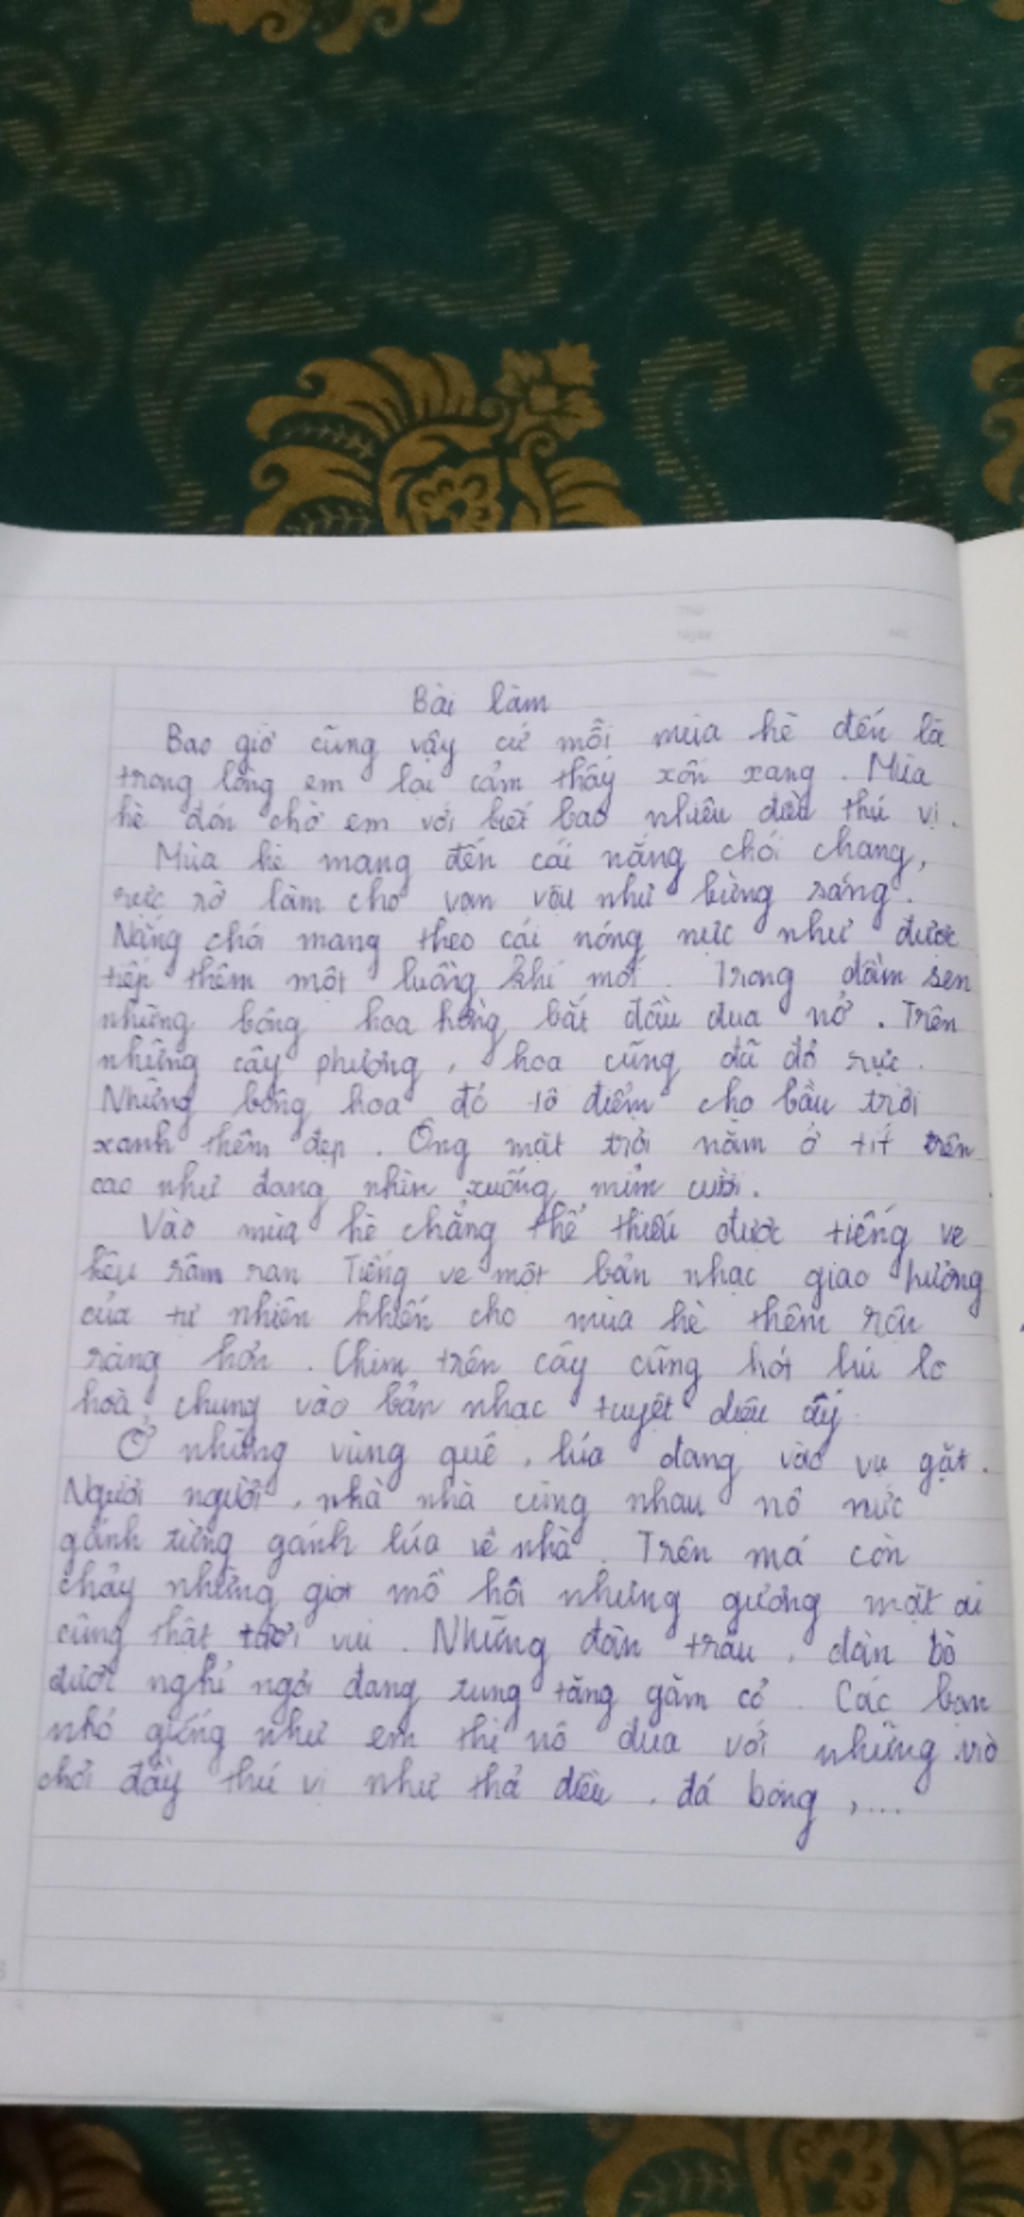 Bài làm
Bao giờ cũng vậy cứ mỗi mùa hè đến là
trong lòng em lại cảm thấy xốn xang. Mùa
hè đón chờ em với biết bao nhiêu điều thú vị.
Mùa hè mang đến cái nắng chói chang,
rực rỡ làm cho vạn vật như bừng sáng.
Nắng chói mang theo cái nóng nực như được
tiếp thêm một luồng khí mới. Trong đầm sen
những bông hoa hồng bắt đầu đua nở. Trên
những cây phượng, hoa cũng đã đỏ rực.
Những bông hoa đó tô điểm cho bầu trời
xanh thêm đẹp. Ông mặt trời nằm ở tít trên
cao như đang nhìn xuống mỉm cười.
Vào mùa hè chẳng thể thiếu được tiếng ve
kêu râm ran Tiếng ve một bản nhạc giao hưởng
của tự nhiên khiến cho mùa hè thêm rộn
ràng hơn. Chim trên cây cũng hót líu lo
hoà chung vào bản nhạc tuyệt diệu ấy.
Ở những vùng quê, lúa đang vào vụ gặt.
Người người, nhà nhà cùng nhau nô nức
gánh từng gánh lúa về nhà. Trên má còn
chảy những giọt mồ hôi nhưng gương mặt ai
cũng thật tươi vui. Những đàn trâu, đàn bò
được nghỉ ngơi đang tung tăng gặm cỏ. Các bạn
nhỏ giống như em thì nô đùa với những trò
chơi đầy thú vị như thả diều, đá bóng,...